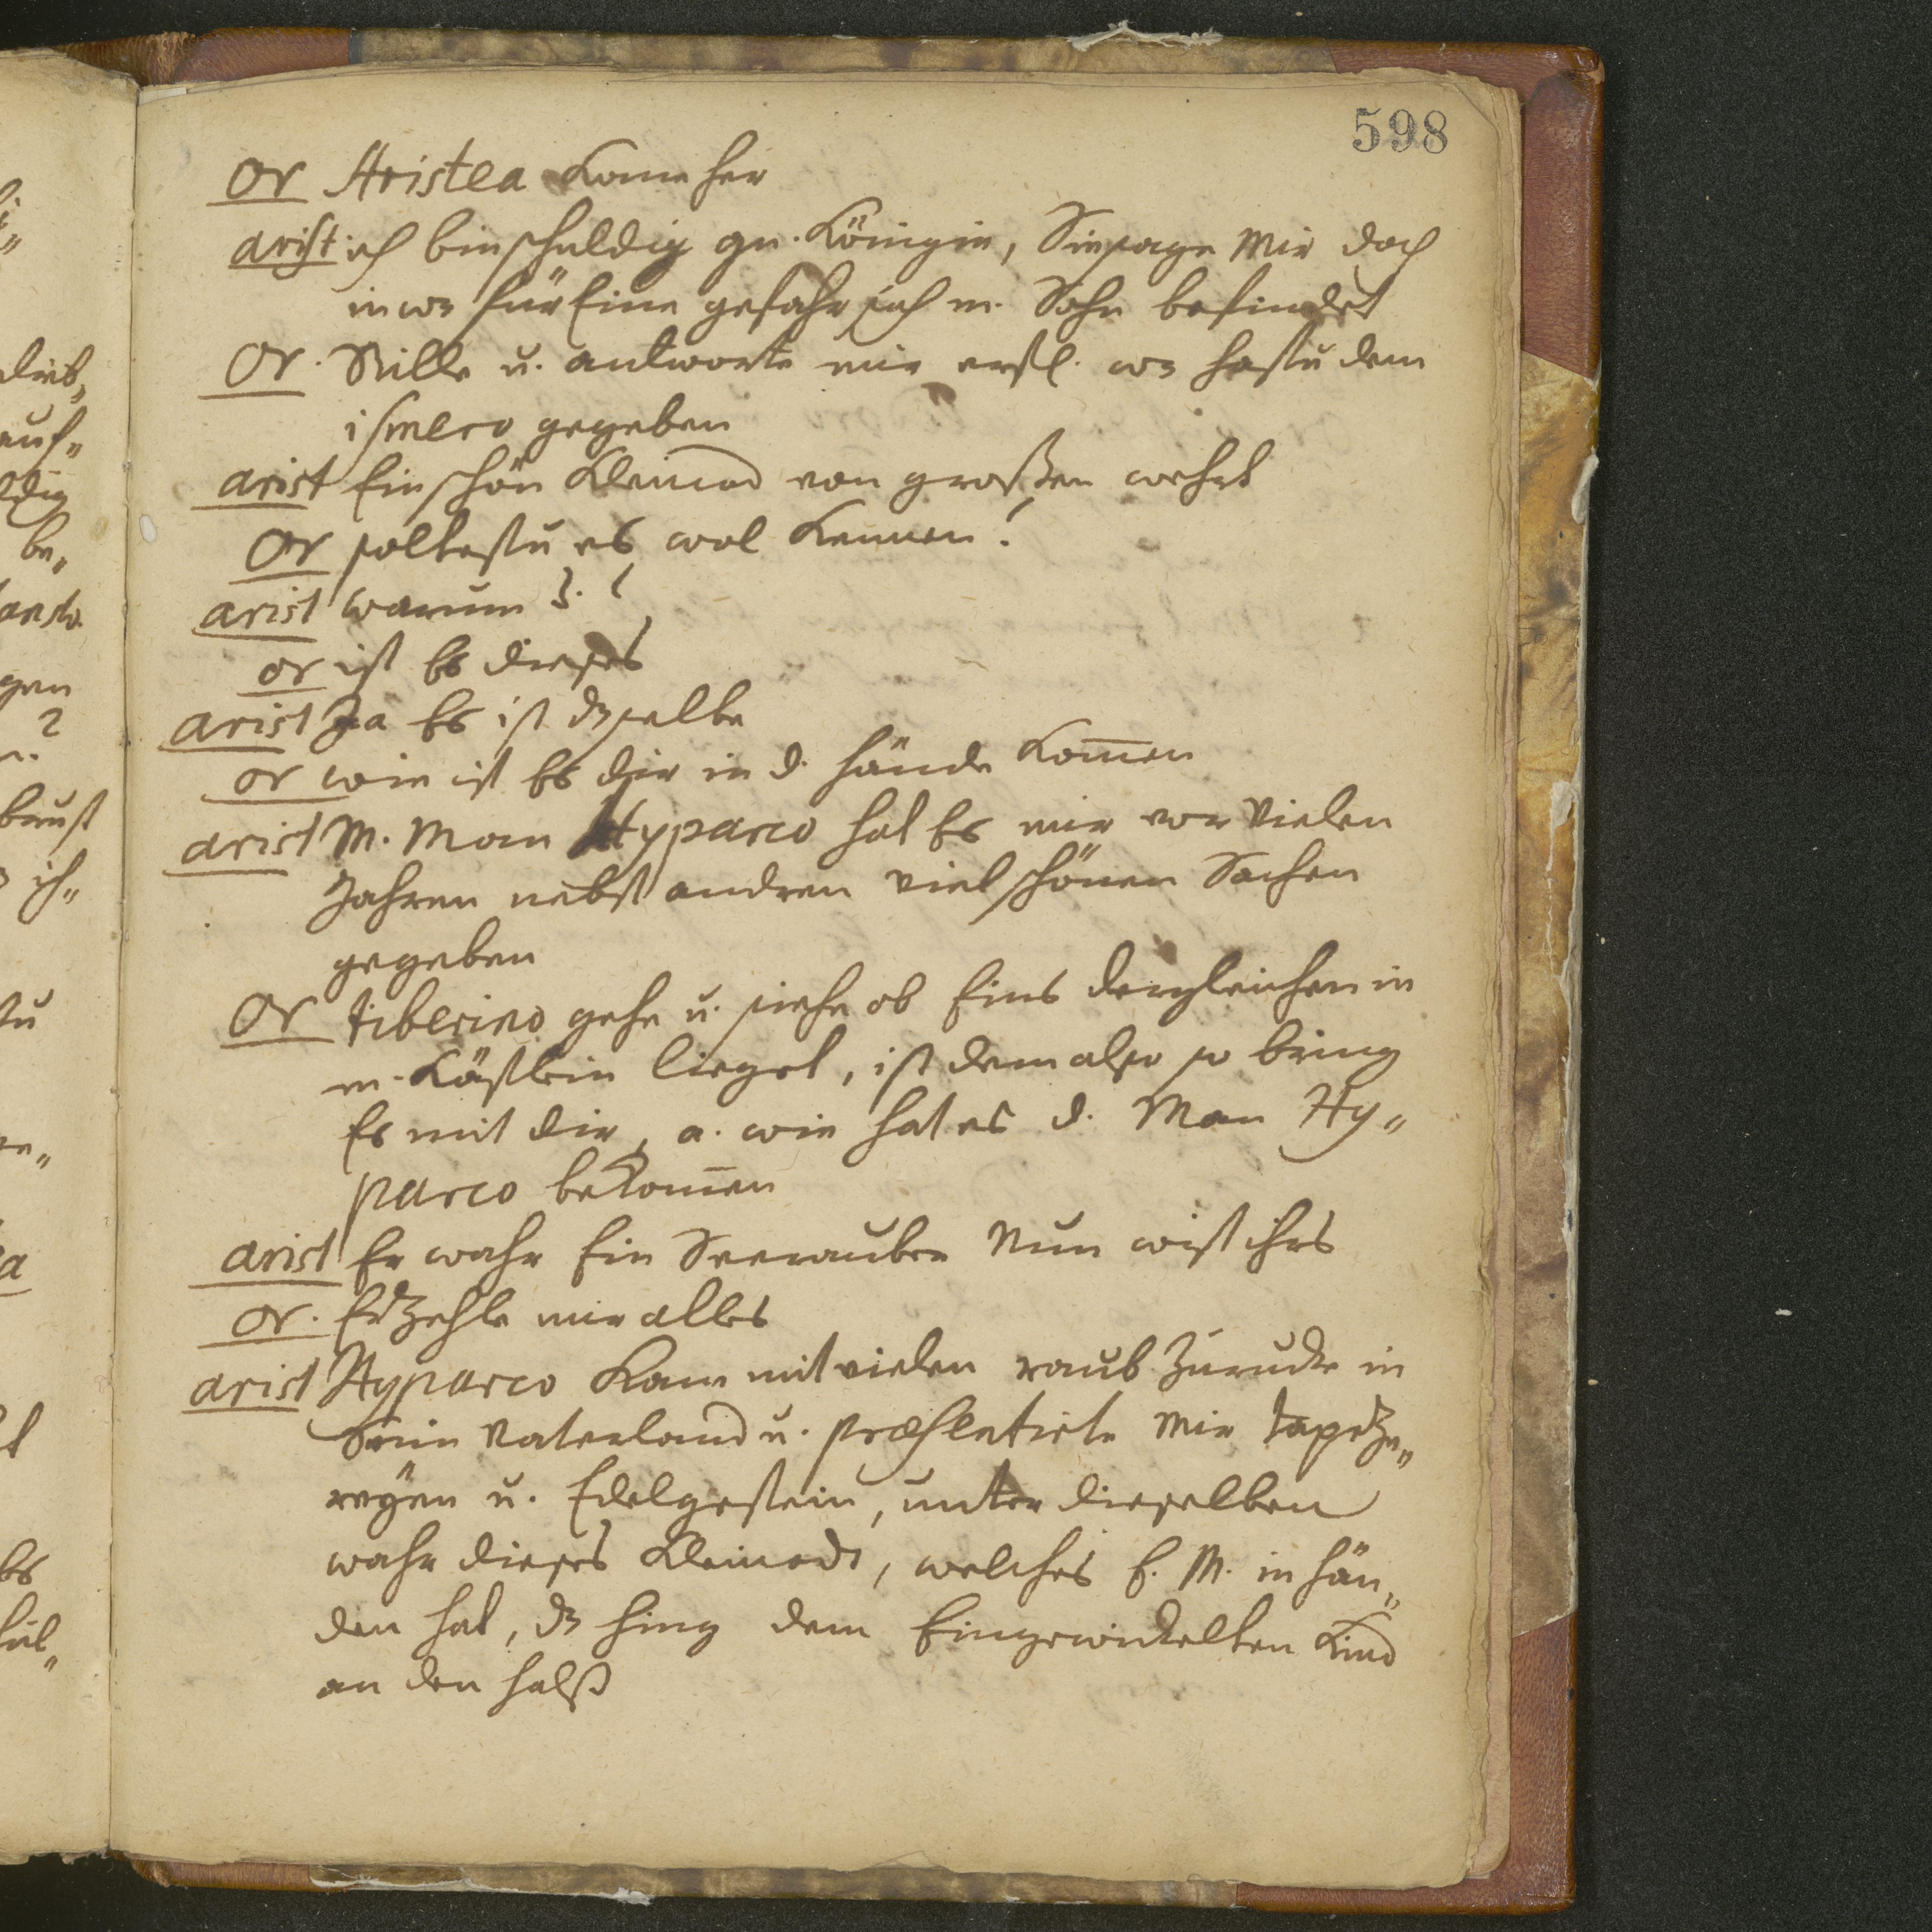 598
or Aristea kome her
arist ich bin schuldig gn. Königin, Sie sage Mir doch
in wz für Eine gefahr sich m. Sohn befindet
Or. Stille u. antworte mir erstl. wz hastu dem
ismero gegeben
arist Ein schön Kleinod von großen wehrt
Or soltestu es wol kennen?
arist warum
or ist Es dieses
arist Ja Es ist dzselbe
or wie ist Es dir in d. hände kom̄en
arist M. Man Hyparco hat Es mir vor Vielen
Jahren nebst andren viel schönen Sachen
gegeben
Or tiberino gehe u. siehe ob Eins dergleichen in
m. Kästlein lieget, ist dem also so bring
Es mit dir, a. wie hat es d. Man Hy„
parco bekom̄en
arist Er wahr Ein Seerauber Nun wist ihrs
or. Erzehle mir alles
arist Hyparco kam mit vielen raub Zurucke in
Sein Vaterland u. præsentirte Mir tapeze„
reyen u. Edelgestein, unter dieselben
wahr dieses Kleinod, welches E. M. in hän„
den hat, dz hing dem Eingewickelten Kind
an den halß